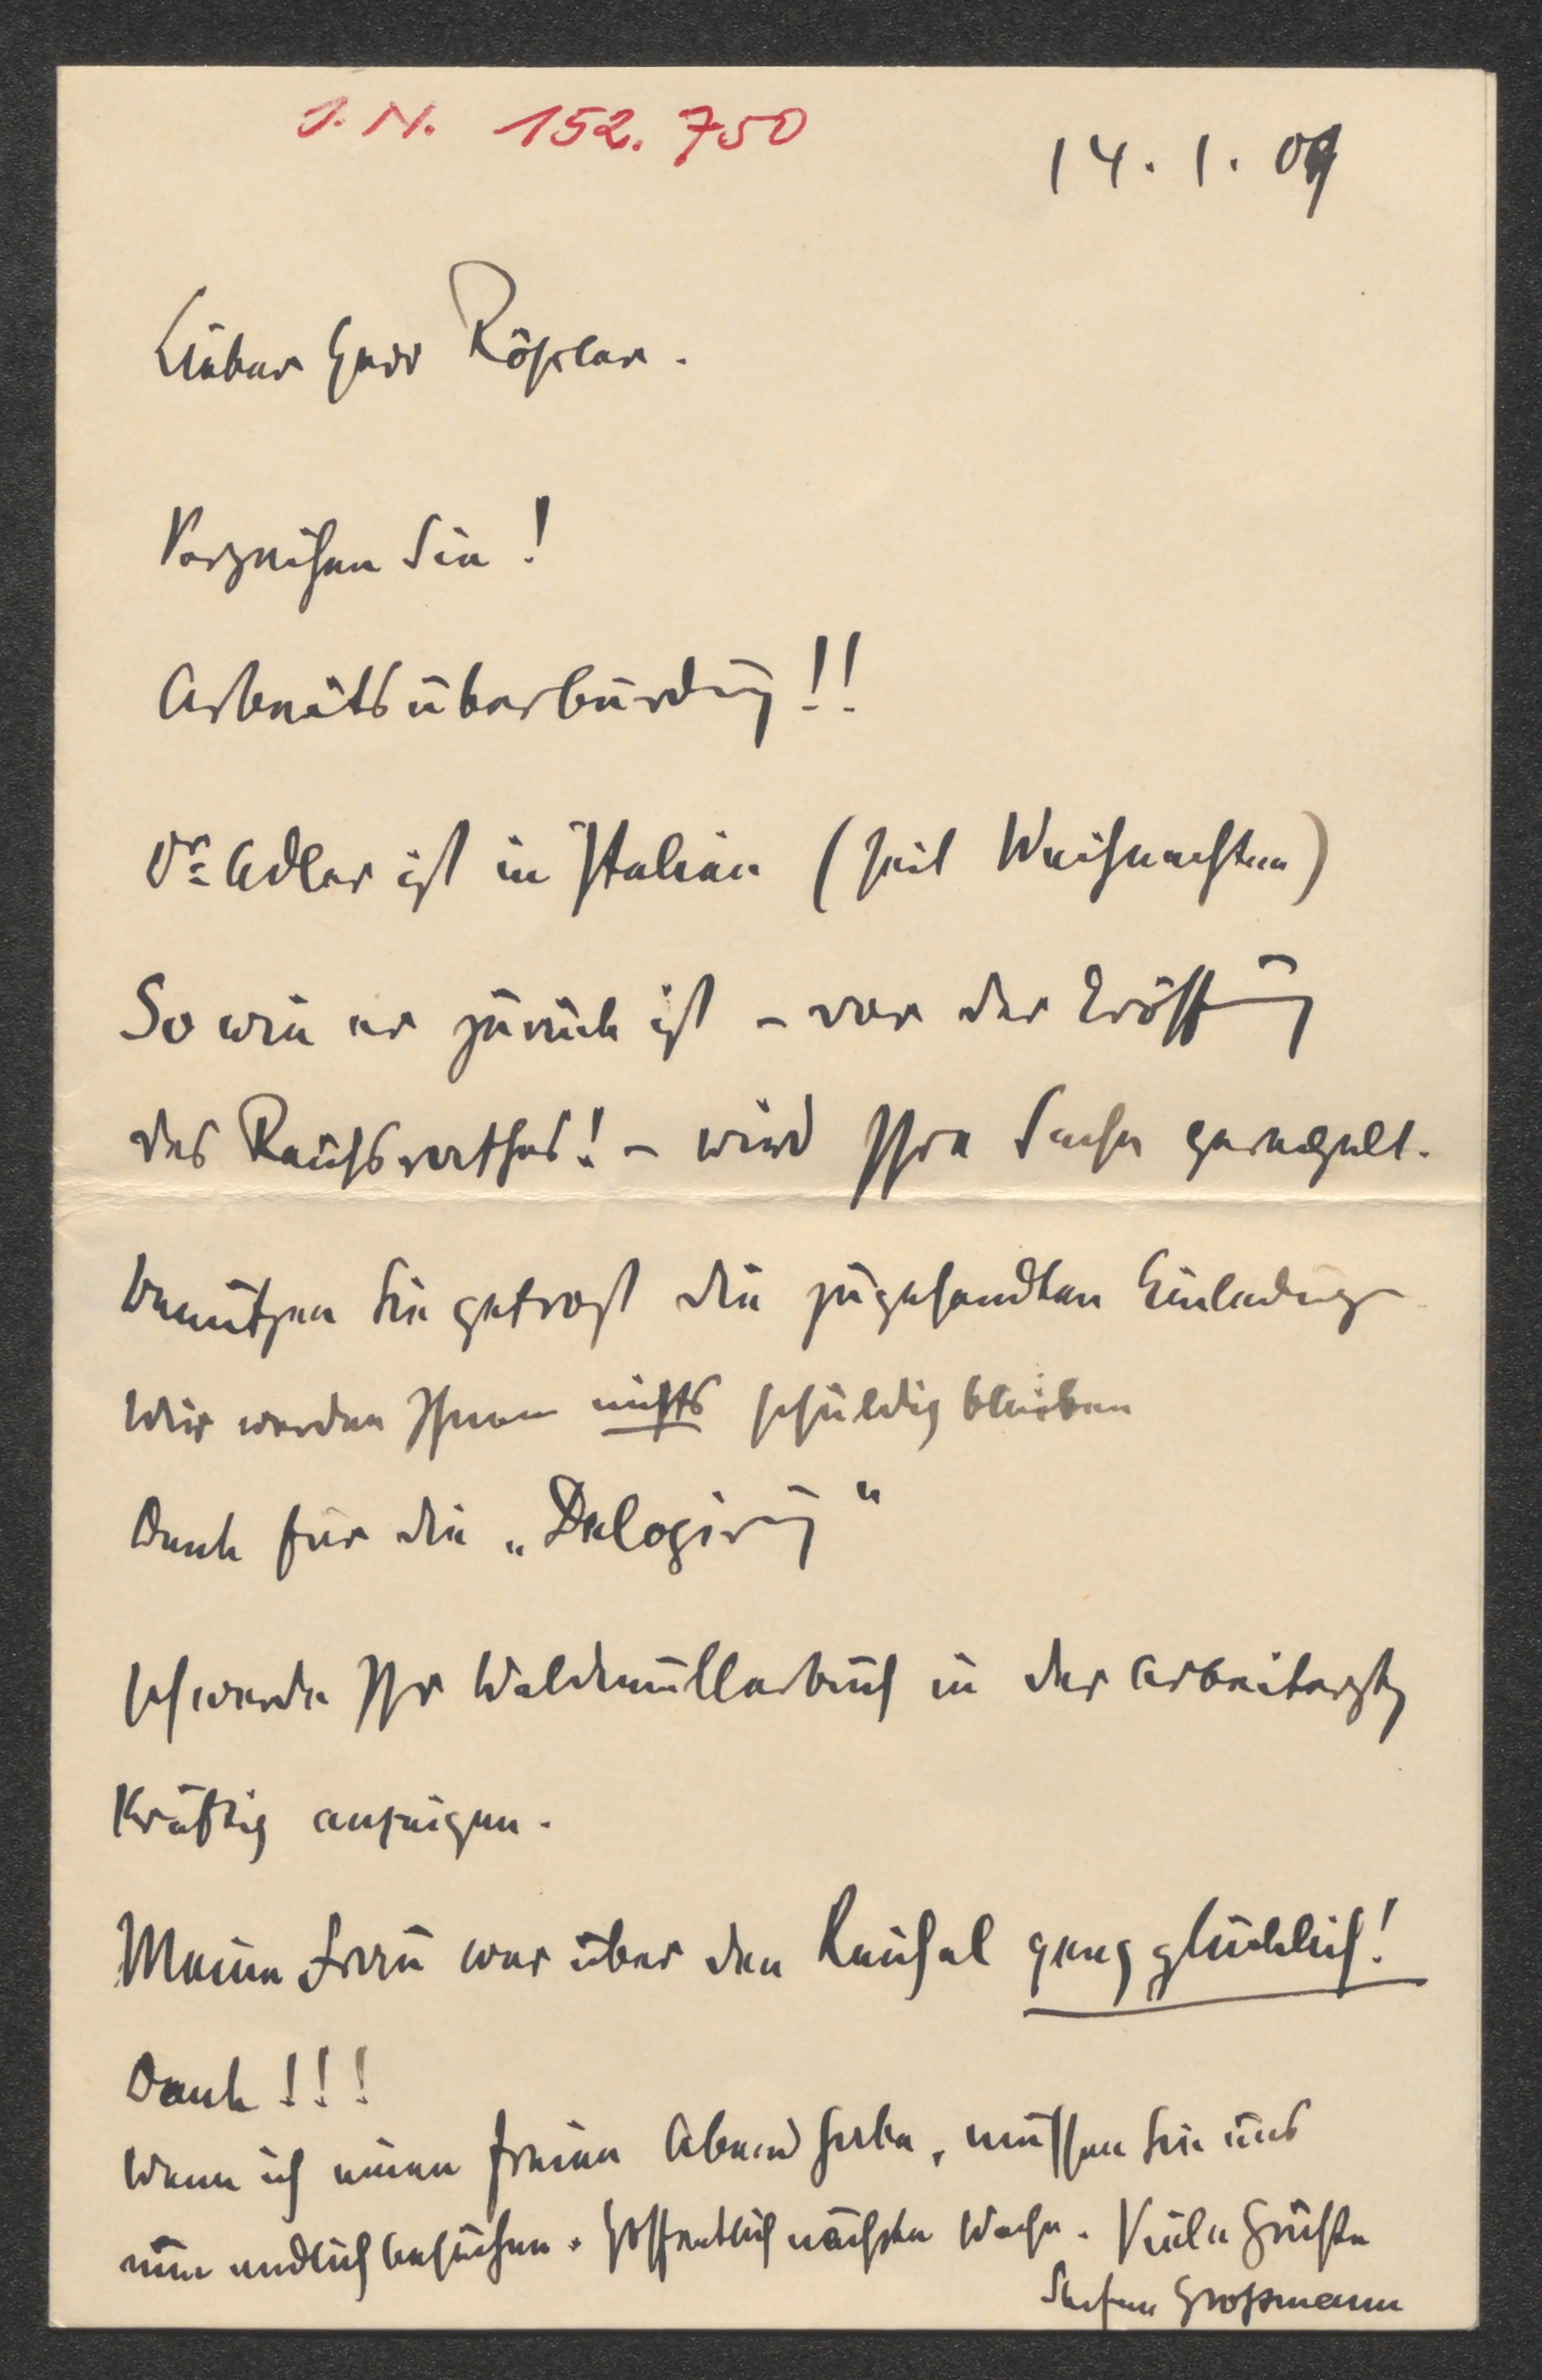 I. N. 152.750
14. 1. 09
Lieber Herr Rößler.
Verzeihen Sie!
Arbeitsüberbürdung!!
Dr. Adler ist in Italien (seit Weihnachten)
So wie er zurück ist – vor der Eröffnung
des Reichsrathes! – wird Ihre Sache geregelt.
Benützen Sie getrost die zugesandten Einladungen
Wir werden Ihnen nichts schuldig bleiben
Dank für die „Delogirung"
Ich werde Ihr Waldmüllerbuch in der Arbeiterztg
kräftig anzeigen.
Meine Frau war über den ganz glücklich!
Dank!!!
Wenn ich einen freien Abend habe, müssen Sie uns
nun endlich besuchen. Hoffentlich nächste Woche. Viele Grüße
Stefan Großmann